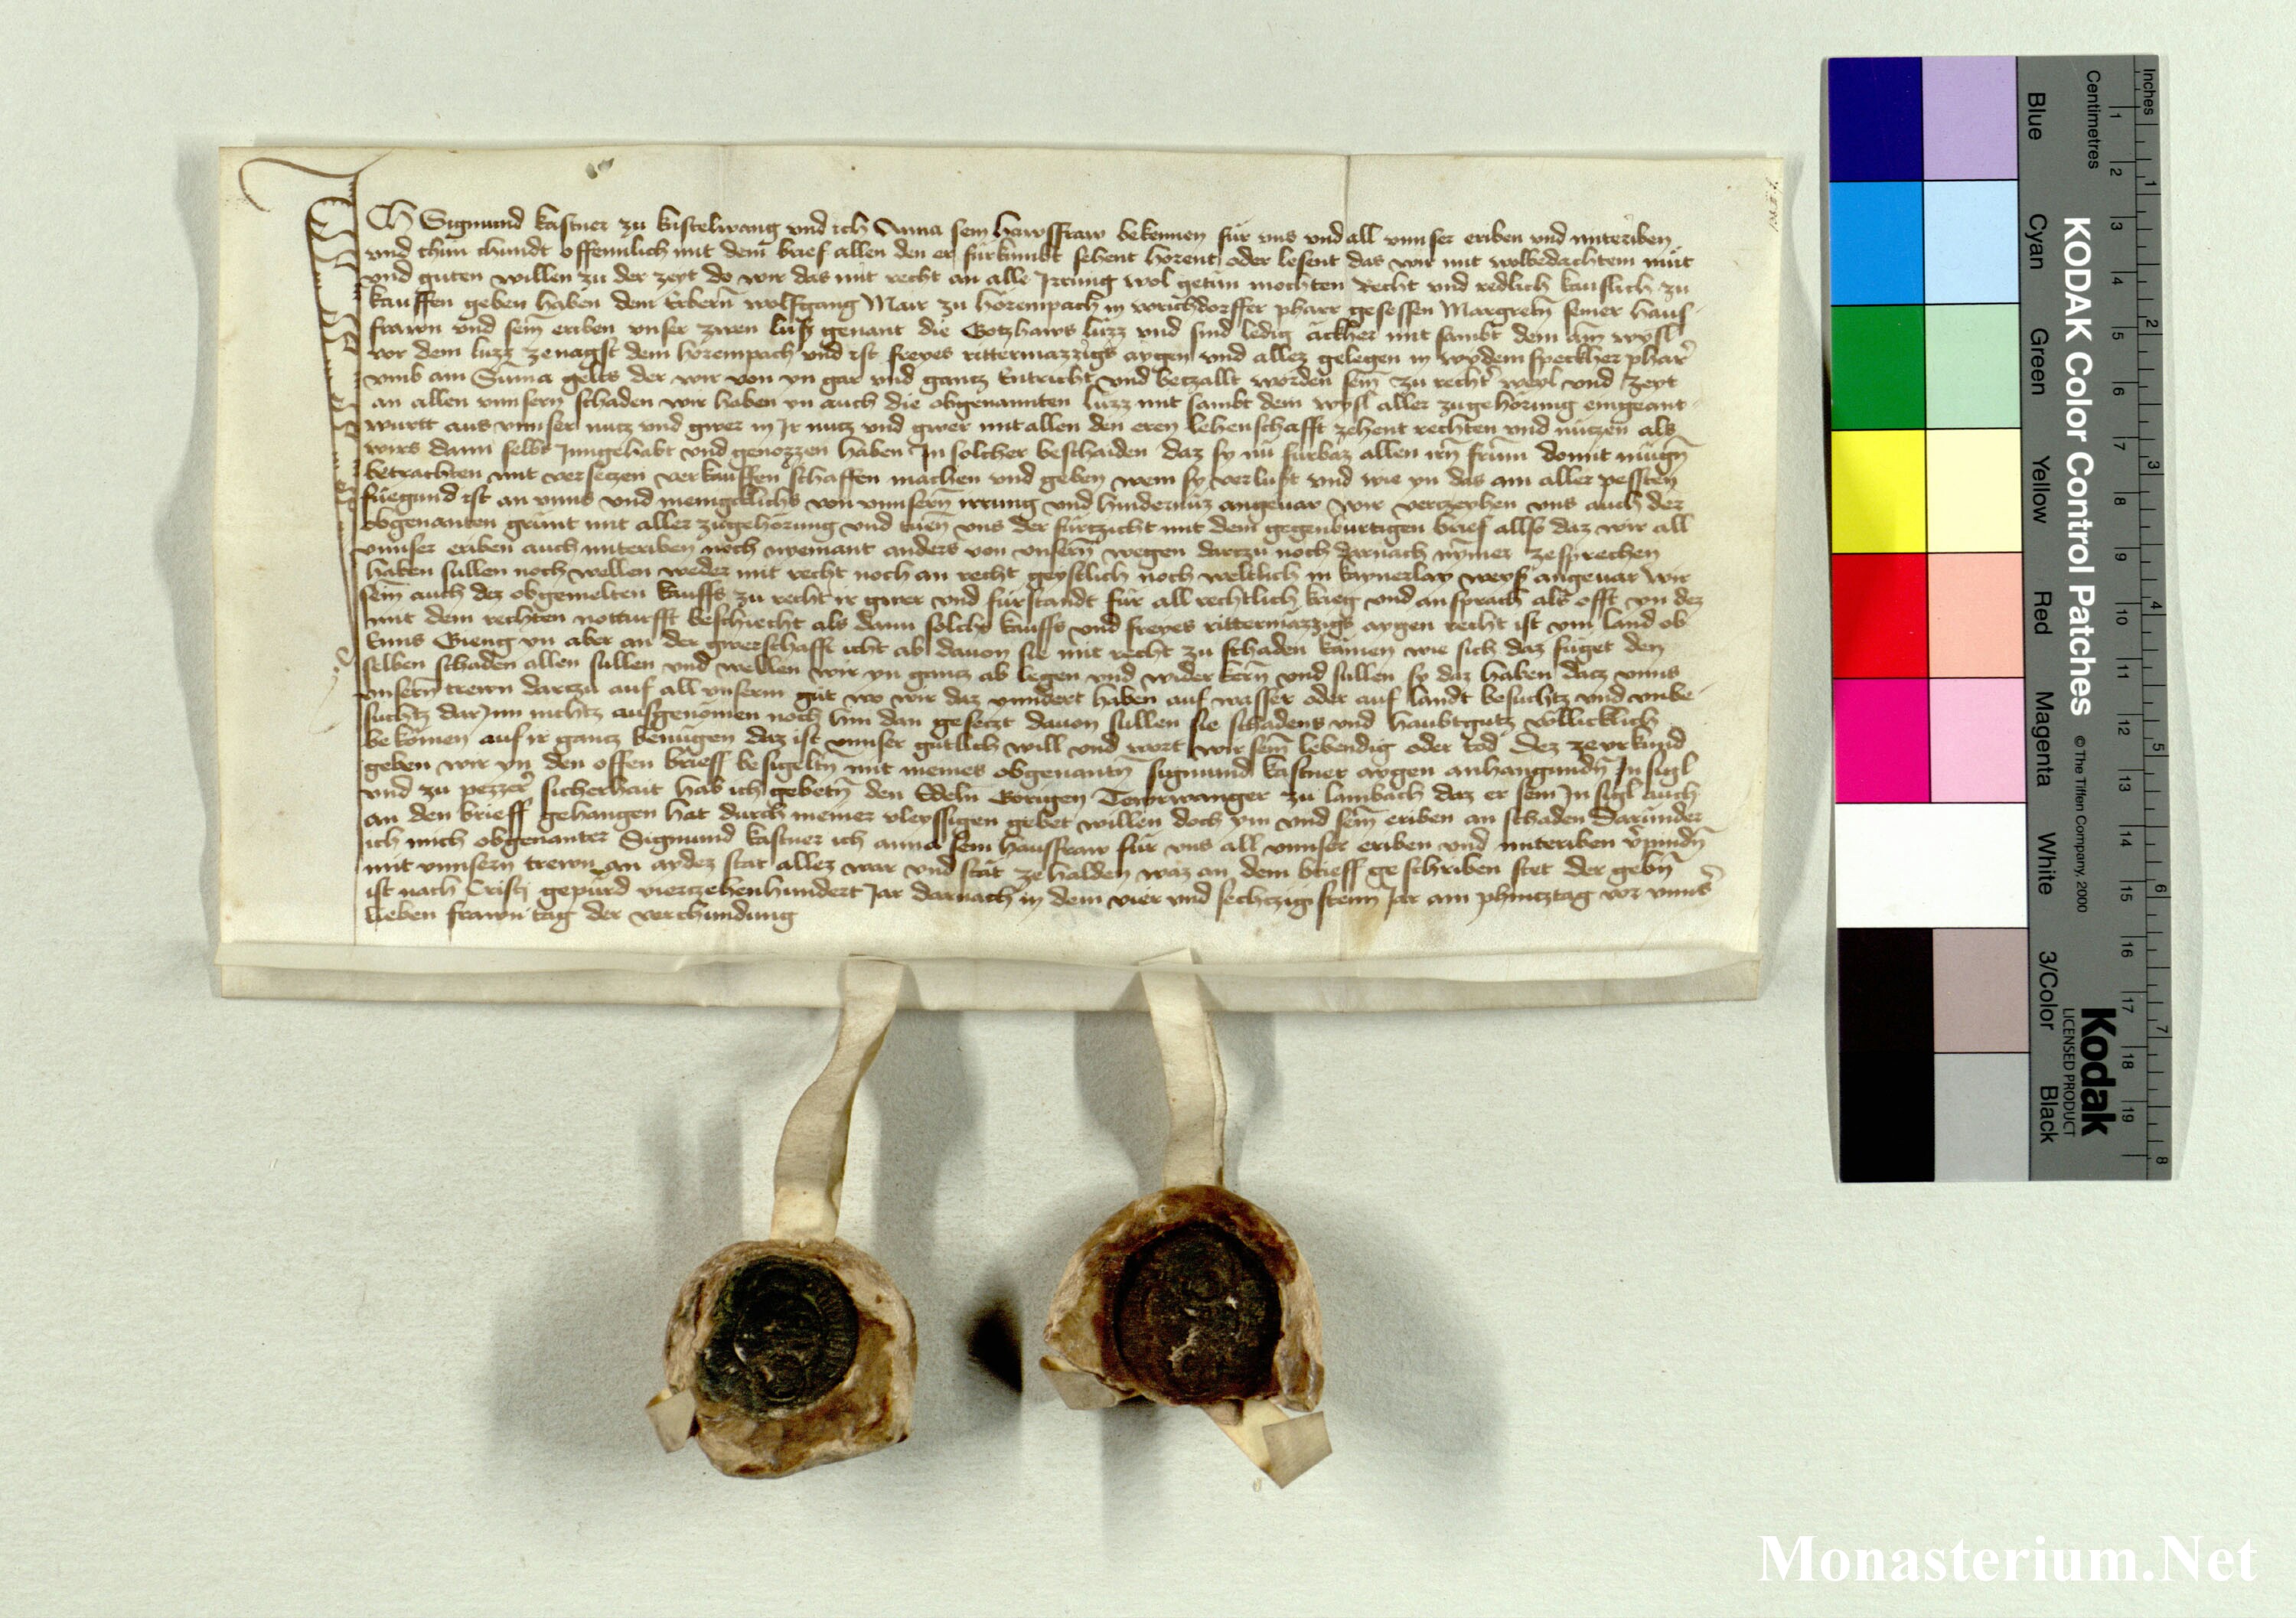 Ich Sigmund kastner zu kistelwang vnd ich Anna sein hawsffraw bekennen für vns vnd all vnnser eriben vnd miteriben
vnd thün chundt offennlich mit dem brief allen den er fürkümbt sehent hörent oder lesent das wir mit wolbedachtem müt
vnd guten willen zu der zeyt do wir das mit recht an alle Irrung wol getün mochten Recht vnd redlich kauflich zu
kauffen geben haben dem Erbern wolfgang Mair zu hörenpach in pharr gesessen Margreten seiner hauf
frawn vnd sein eriben vnser zwen lüss genant die Gotzhaws lüzz vnd sind ledig äckher mit sambt dem wysl
vor dem luzz zenagst dem hörenpach vnd ist freyes rittermazzigs aygen vnd allez gelegen in phar
vmb ain Suma gelts der wir von yn gar vnd gantz Entricht vnd betzallt worden sein zu recht weyl vnd zeyt
an allen vnnsern schaden wir haben yn auch die obgenannten lüzz mit sambt dem wysl aller zugehörung eingeant
wurtt aus vnnser nutz vnd gwer in Ir nutz vnd gwer mit allen den eren lehenschafft zehent rechten vnd nützen als
wirs dann selbt Inngehabt vnd genozzen haben In solcher beschaiden daz sy nü fürbaz allen irn frum domit mügn
betrachten mit versetzen verkauffen schaffen machen vnd geben wem sy verlust vnd wie yn das am aller pessten
füegund ist an vnns vnd menigklichs von vnnsern irrung vnd hindernüz angeuar wir vertzeyhen vns auch der
obgenanten grünt mit aller zugehörung vnd tuen vns der fürtzicht mit dem gegenburtigen brief allso daz wir all
vnnser eriben auch miteriben noch nyemant anders von vnsern wegen dartzu noch darnach nymer zesprechen
haben sullen noch wellen weder mit recht noch an recht geystlich noch weltlich in kaynerlay weyss angeuar Wir
sein auch dez obgemelten kauffs zu recht ir gwer vnd fürstandt für all rechtlich krieg vnd ansprach als offt yn dez
mit dem rechten notturfft beschiecht als dann solchs kauffs vnd freyes rittermazzigs aygen recht ist vnn land ob
Enns Gieng yn aber an der gwerschafft icht ab dauon sie mit recht zu schaden kämen wie sich daz füget den
selben schaden allen sullen vnd wellen wir yn gantz ab legen vnd wider kern vnd sullen sy daz haben datz vnns
vnsern trewn dartzu auf all vnserm güt wo wir daz ynndert haben auf wasser oder auf landt besuchtz vnd vnbe
suchtz darInn nichtz aufgenömen noch hin dan gesetzt dauon sullen sie schadens vnd haubtgutz völlicklich
bekömen auf ir gantz benügen daz ist vnnser gütlich will vnd wort wir sein lebendig oder tod Dez ze vrkund
geben wir yn den offen brieff besigelten mit meines obgenantn Sigmund kastner aygen anhangundn Insigl
vnd zu pezzer sicherhait hab ich gebetn den Edeln Gorigen Tewrwanger zu lambach daz er sein Insigl auch
an den brieff gehangen hat durch meiner vleyssigen gebet willen doch ym vnd sein eriben an schaden Darunder
ich mich obgenanter Sigmund kastner ich anna sein hausfraw für vns all vnnser eriben vnd miteriben verpindn
mit vnnsern trewn an aydez stat allez war vnd stät ze halden waz an dem brieff geschriben stet der gebn
ist nach Cristj gepürd viertzehenhundert Jar darnach in dem vier vnd sechtzigistenn Jar am phintztag vor vnns
lieben frawn tag der verchundung
Inches
Centimetres
KODAK Color Control Patches
© The Tiffen Company, 2000
Kodak
LICENSED PRODUCT
Blue
Cyan
Green
Yellow
Red
Magenta
White
3/Color
Black
1 2 3 4 5 6 7 8 9 10 11 12 13 14 15 16 17 18 19
1 2 3 4 5 6 7 8
Monasterium.Net